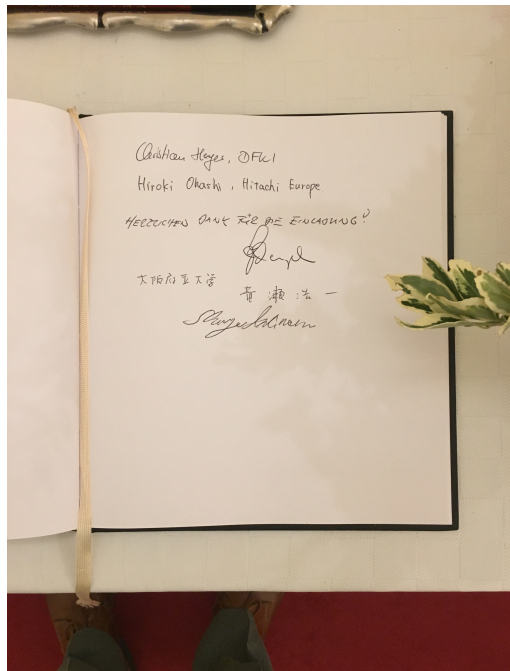 Christian Heyer, DFKI
Hiroki Ohashi, Hitachi Europe
HERZLICHEN DANK FÜR DIE EINLADUNG!
大阪府立大学
黄瀬浩一